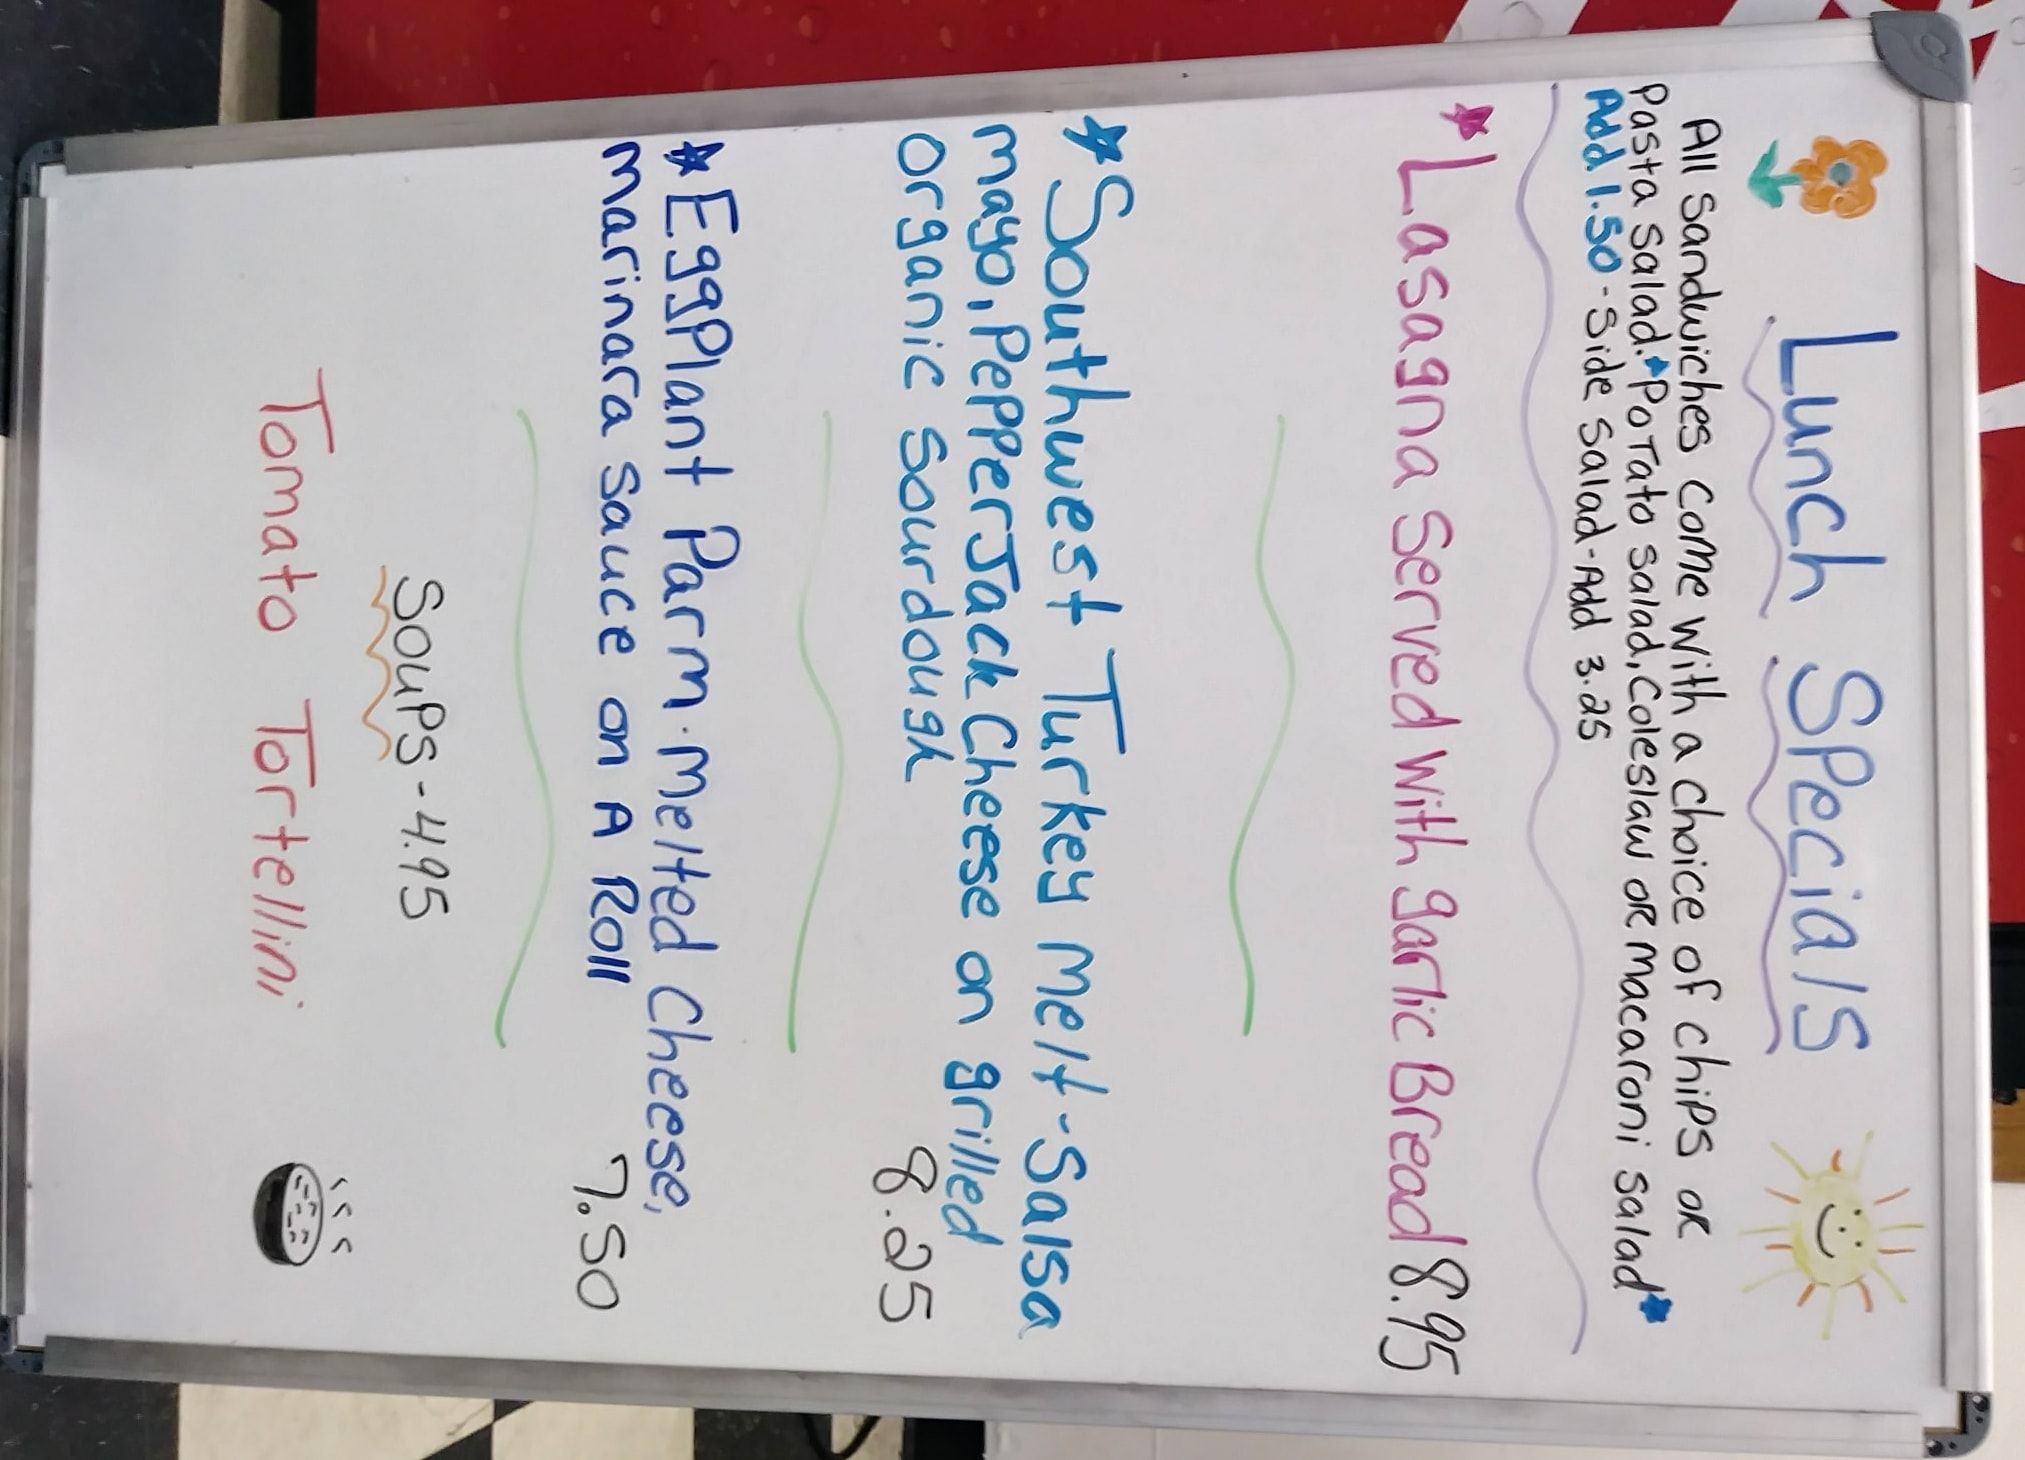 Lunch Specials
All Sandwiches come with a choice of chips or
Pasta Salad.*Potato Salad, Coleslaw or macaroni salad*
Add 1.50 - Side Salad - Add 3.25
*Lasagna Served with garlic Bread 8.95
*Southwest Turkey melt - Salsa
mayo, PepperJack Cheese on grilled
organic sourdough 8.25
*EggPlant Parm. melted Cheese,
marinara sauce on A Roll 7.50
Soups - 4.95
Tomato Tortellini